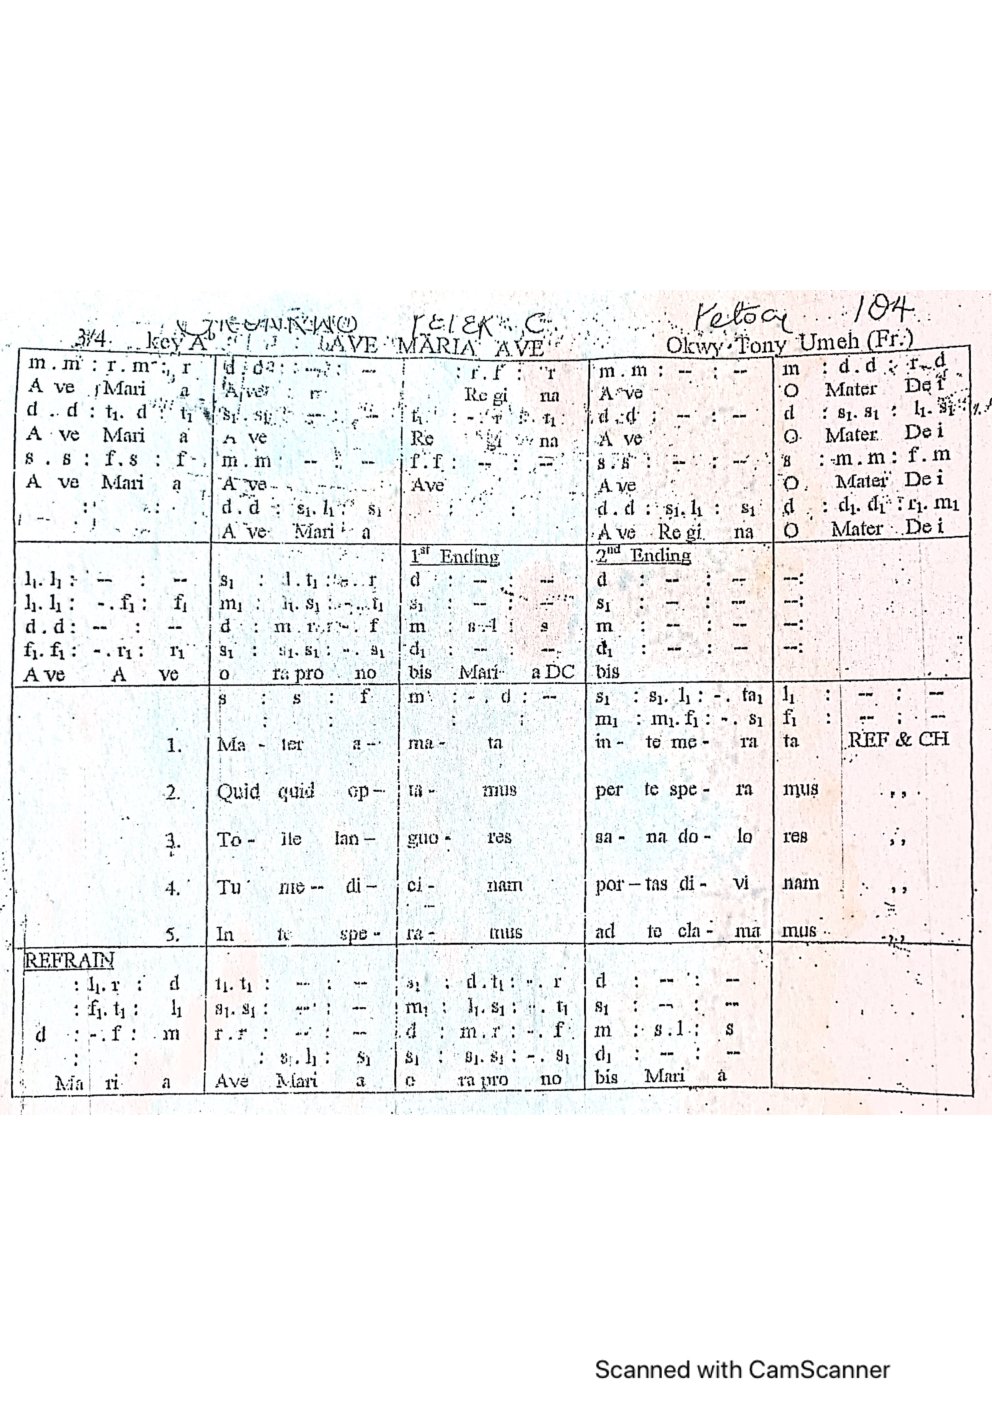 PETER C. 104
3/4 key Aᵇ AVE MARIA AVE Okwy Tony Umeh (Fr.)
m . m : r . m : r | d . d : -- : -- | : r . f : r | m . m : -- : -- | m : d . d : r . d
A ve Mari a | A ve | Re gi na | A ve | O Mater De i
d . d : t₁ . d : t₁ | s₁ . s₁ : -- : -- | t₁ : - . r : t₁ | d . d : -- : -- | d : s₁ . s₁ : l₁ . s₁
A ve Mari a | A ve | Re gi na | A ve | O Mater De i
s . s : f . s : f | m . m : -- : -- | f . f : -- : -- | s . s : -- : -- | s : m . m : f . m
A ve Mari a | A ve | Ave | A ve | O Mater De i
: : | d . d : s₁ . l₁ : s₁ | : : | d . d : s₁ . l₁ : s₁ | d : d₁ . d₁ : r₁ . m₁
A ve Mari a | A ve Re gi na | O Mater De i
1ˢᵗ Ending | 2ⁿᵈ Ending
l₁ . l₁ : -- : -- | s₁ : d . t₁ : - . r | d : -- : -- | d : -- : -- | --:
l₁ . l₁ : - . f₁ : f₁ | m₁ : l₁ . s₁ : - . t₁ | s₁ : -- : -- | s₁ : -- : -- | --:
d . d : -- : -- | d : m . r : - . f | m : s . l : s | m : -- : -- | --:
f₁ . f₁ : - . r₁ : r₁ | s₁ : s₁ . s₁ : - . s₁ | d₁ : -- : -- | d₁ : -- : -- | --:
A ve A ve | o ra pro no | bis Mari a DC | bis
s : s : f | m : - . d : -- | s₁ : s₁ . l₁ : - . ta₁ | l₁ : -- : --
: : | : : | m₁ : m₁ . f₁ : - . s₁ | f₁ : -- : --
1. Ma - ter a - | ma - ta | in - te me - ra | ta REF & CH
2. Quid quid op - | ta - mus | per te spe - ra | mus ,,
3. To - lle lan - | guo - res | sa - na do - lo | res ,,
4. Tu me -- di - | ci - nam | por - tas di - vi | nam ,,
5. In te spe - | ra - mus | ad te cla - ma | mus ,,
REFRAIN
: l₁ . r : d | t₁ . t₁ : -- : -- | s₁ : d . t₁ : - . r | d : -- : --
: f₁ . t₁ : l₁ | s₁ . s₁ : -- : -- | m₁ : l₁ . s₁ : - . t₁ | s₁ : -- : --
d : - . f : m | r . r : -- : -- | d : m . r : - . f | m : s . l : s
: : | : s₁ . l₁ : s₁ | s₁ : s₁ . s₁ : - . s₁ | d₁ : -- : --
Ma ri a | Ave Mari a | o ra pro no | bis Mari a
Scanned with CamScanner